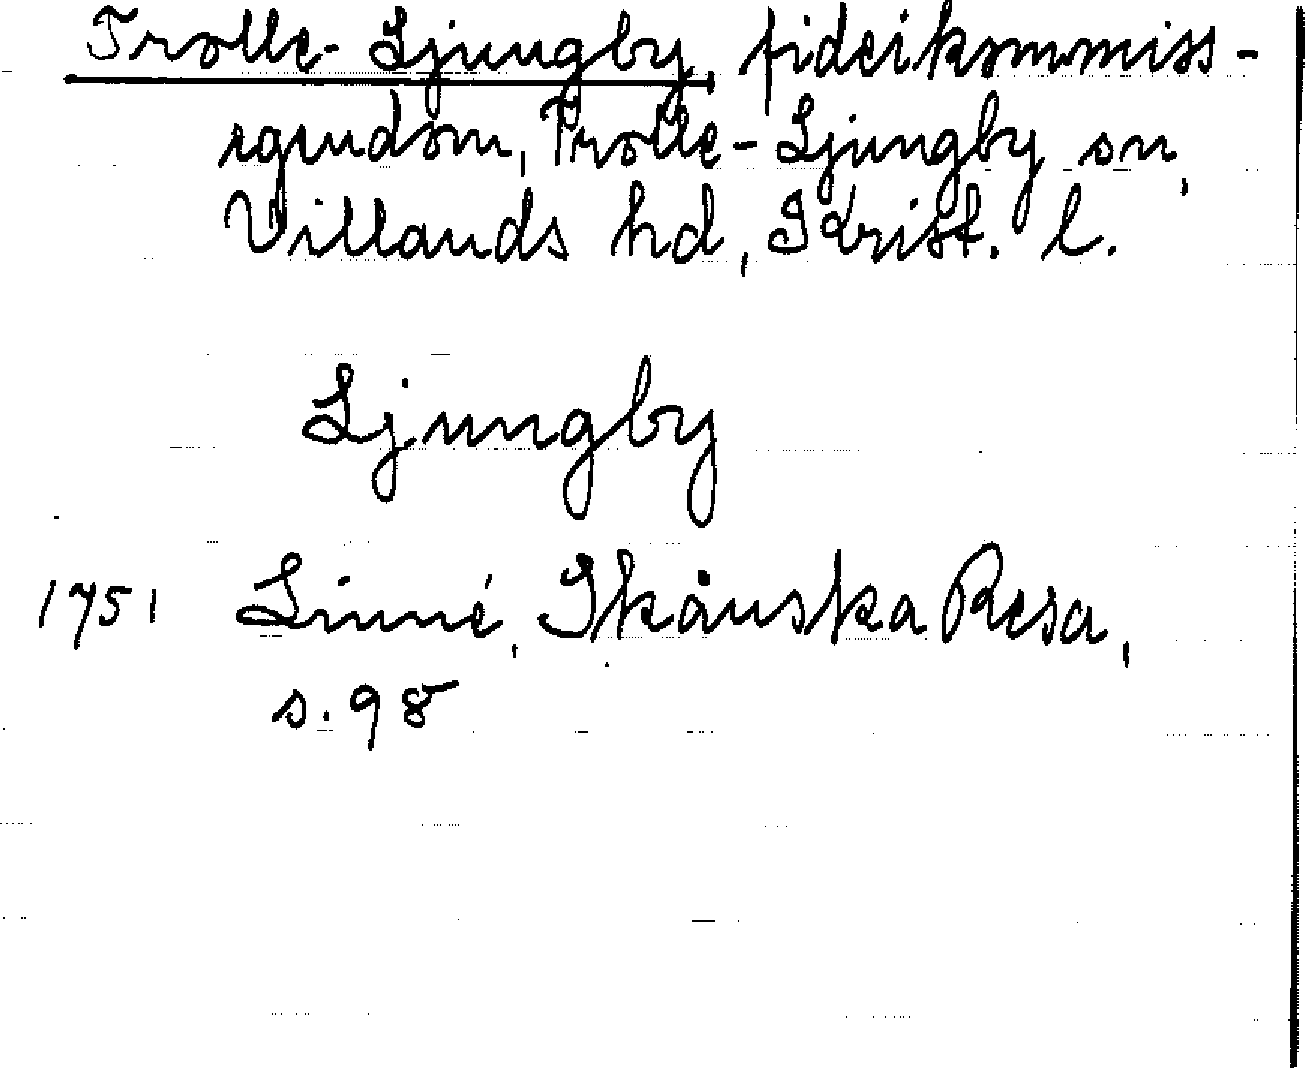 Trolle-Ljungby, fideikommiss-
egendom, Trolle-Ljungby sn,
Villands hd, Krist. l.
Ljungby
1751 Linné, Skånska Resa,
s. 98